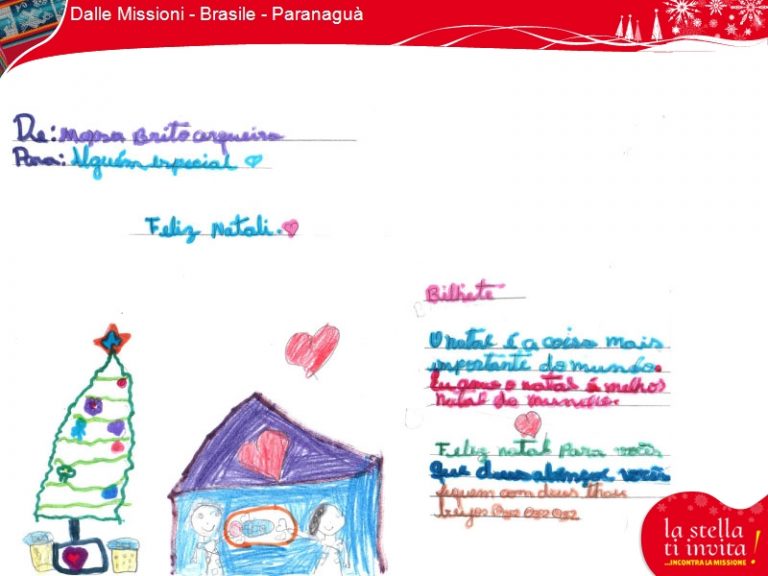 Dalle Missioni - Brasile - Paranaguà
De: Maysa Brito cerqueira
Para: Alguém especial
Feliz Natali.
Bilhete
O natal é a coisa mais
importante do mundo.
Eu amo o natal á melhor
natal do mundo.
Feliz natal Para vocês
Que deus abençoe vocês
fiquem com deus thau
beijos
la stella
ti invita!
...INCONTRA LA MISSIONE